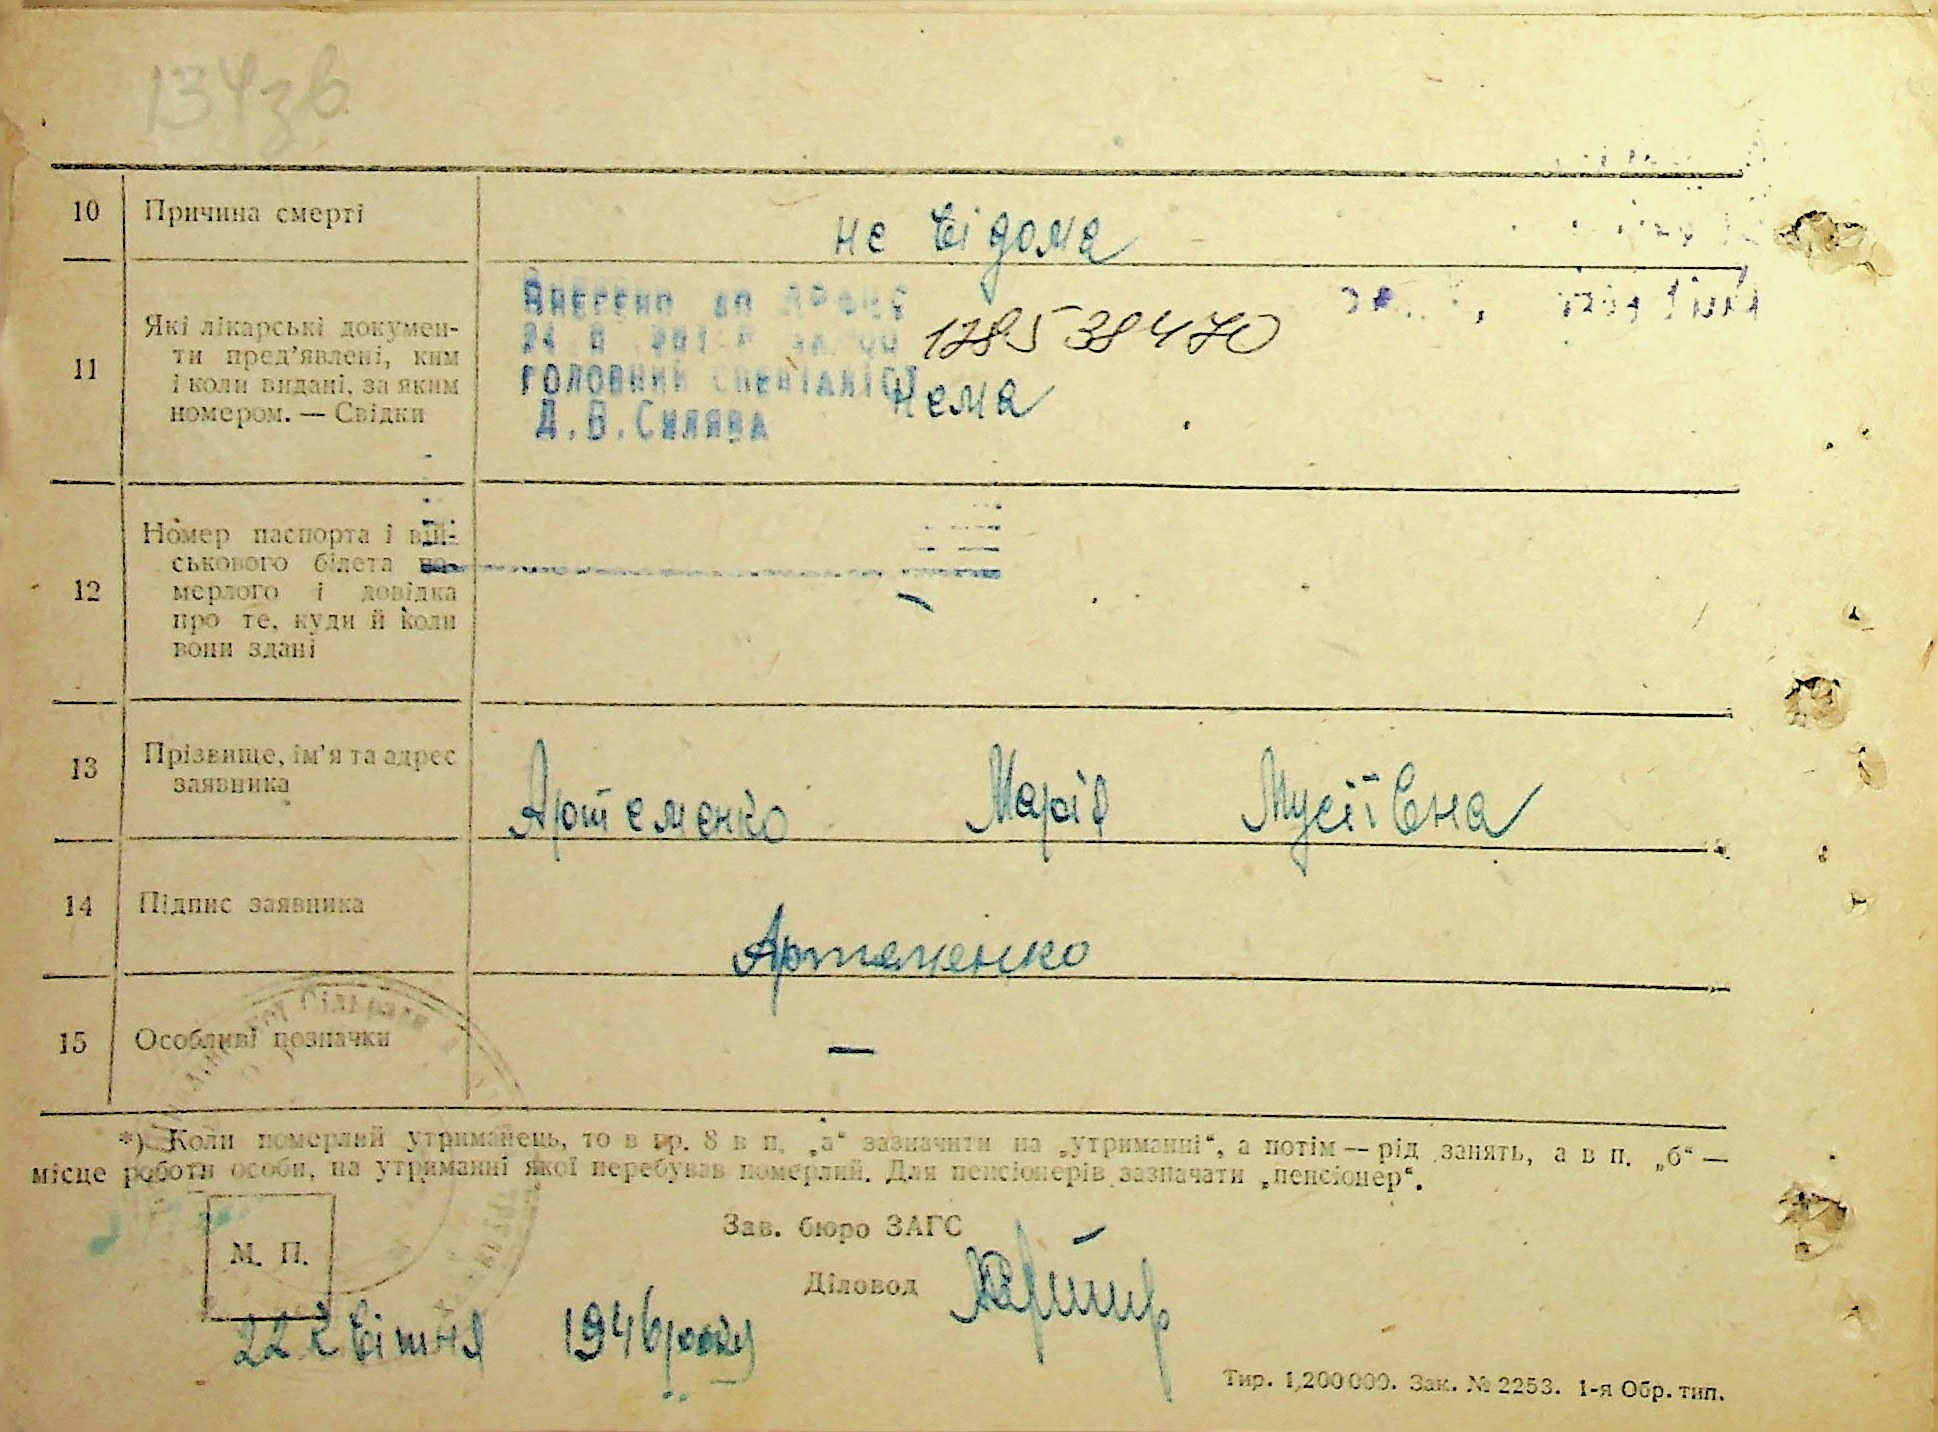 134зв
10 Причина смерті не відома
11 Які лікарські докумен-
ти пред’явлені, ким
і коли видані, за яким
номером. — Свідки
Внесено до
178538470
головний спеціаліст
нема
Д.В.Силява
12 Номер паспорта і вій-
ськового білета по-
мерлого і довідка
про те, куди й коли
вони здані
—
13 Прізвище, ім’я та адрес
заявника
Артеменко Марія Мусіївна
14 Підпис заявника Артеменко
15 Особливі позначки —
*) Коли померлий утриманець, то в гр. 8 в п. „а“ зазначити на „утриманні“, а потім — рід занять, а в п. „б“ —
місце роботи особи, на утриманні якої перебував померлий. Для пенсіонерів зазначати „пенсіонер“.
Зав. бюро ЗАГС
М. П.
Діловод
22 квітня 1946 року
Тир. 1,200 000. Зак. № 2253. 1-я Обр. тип.